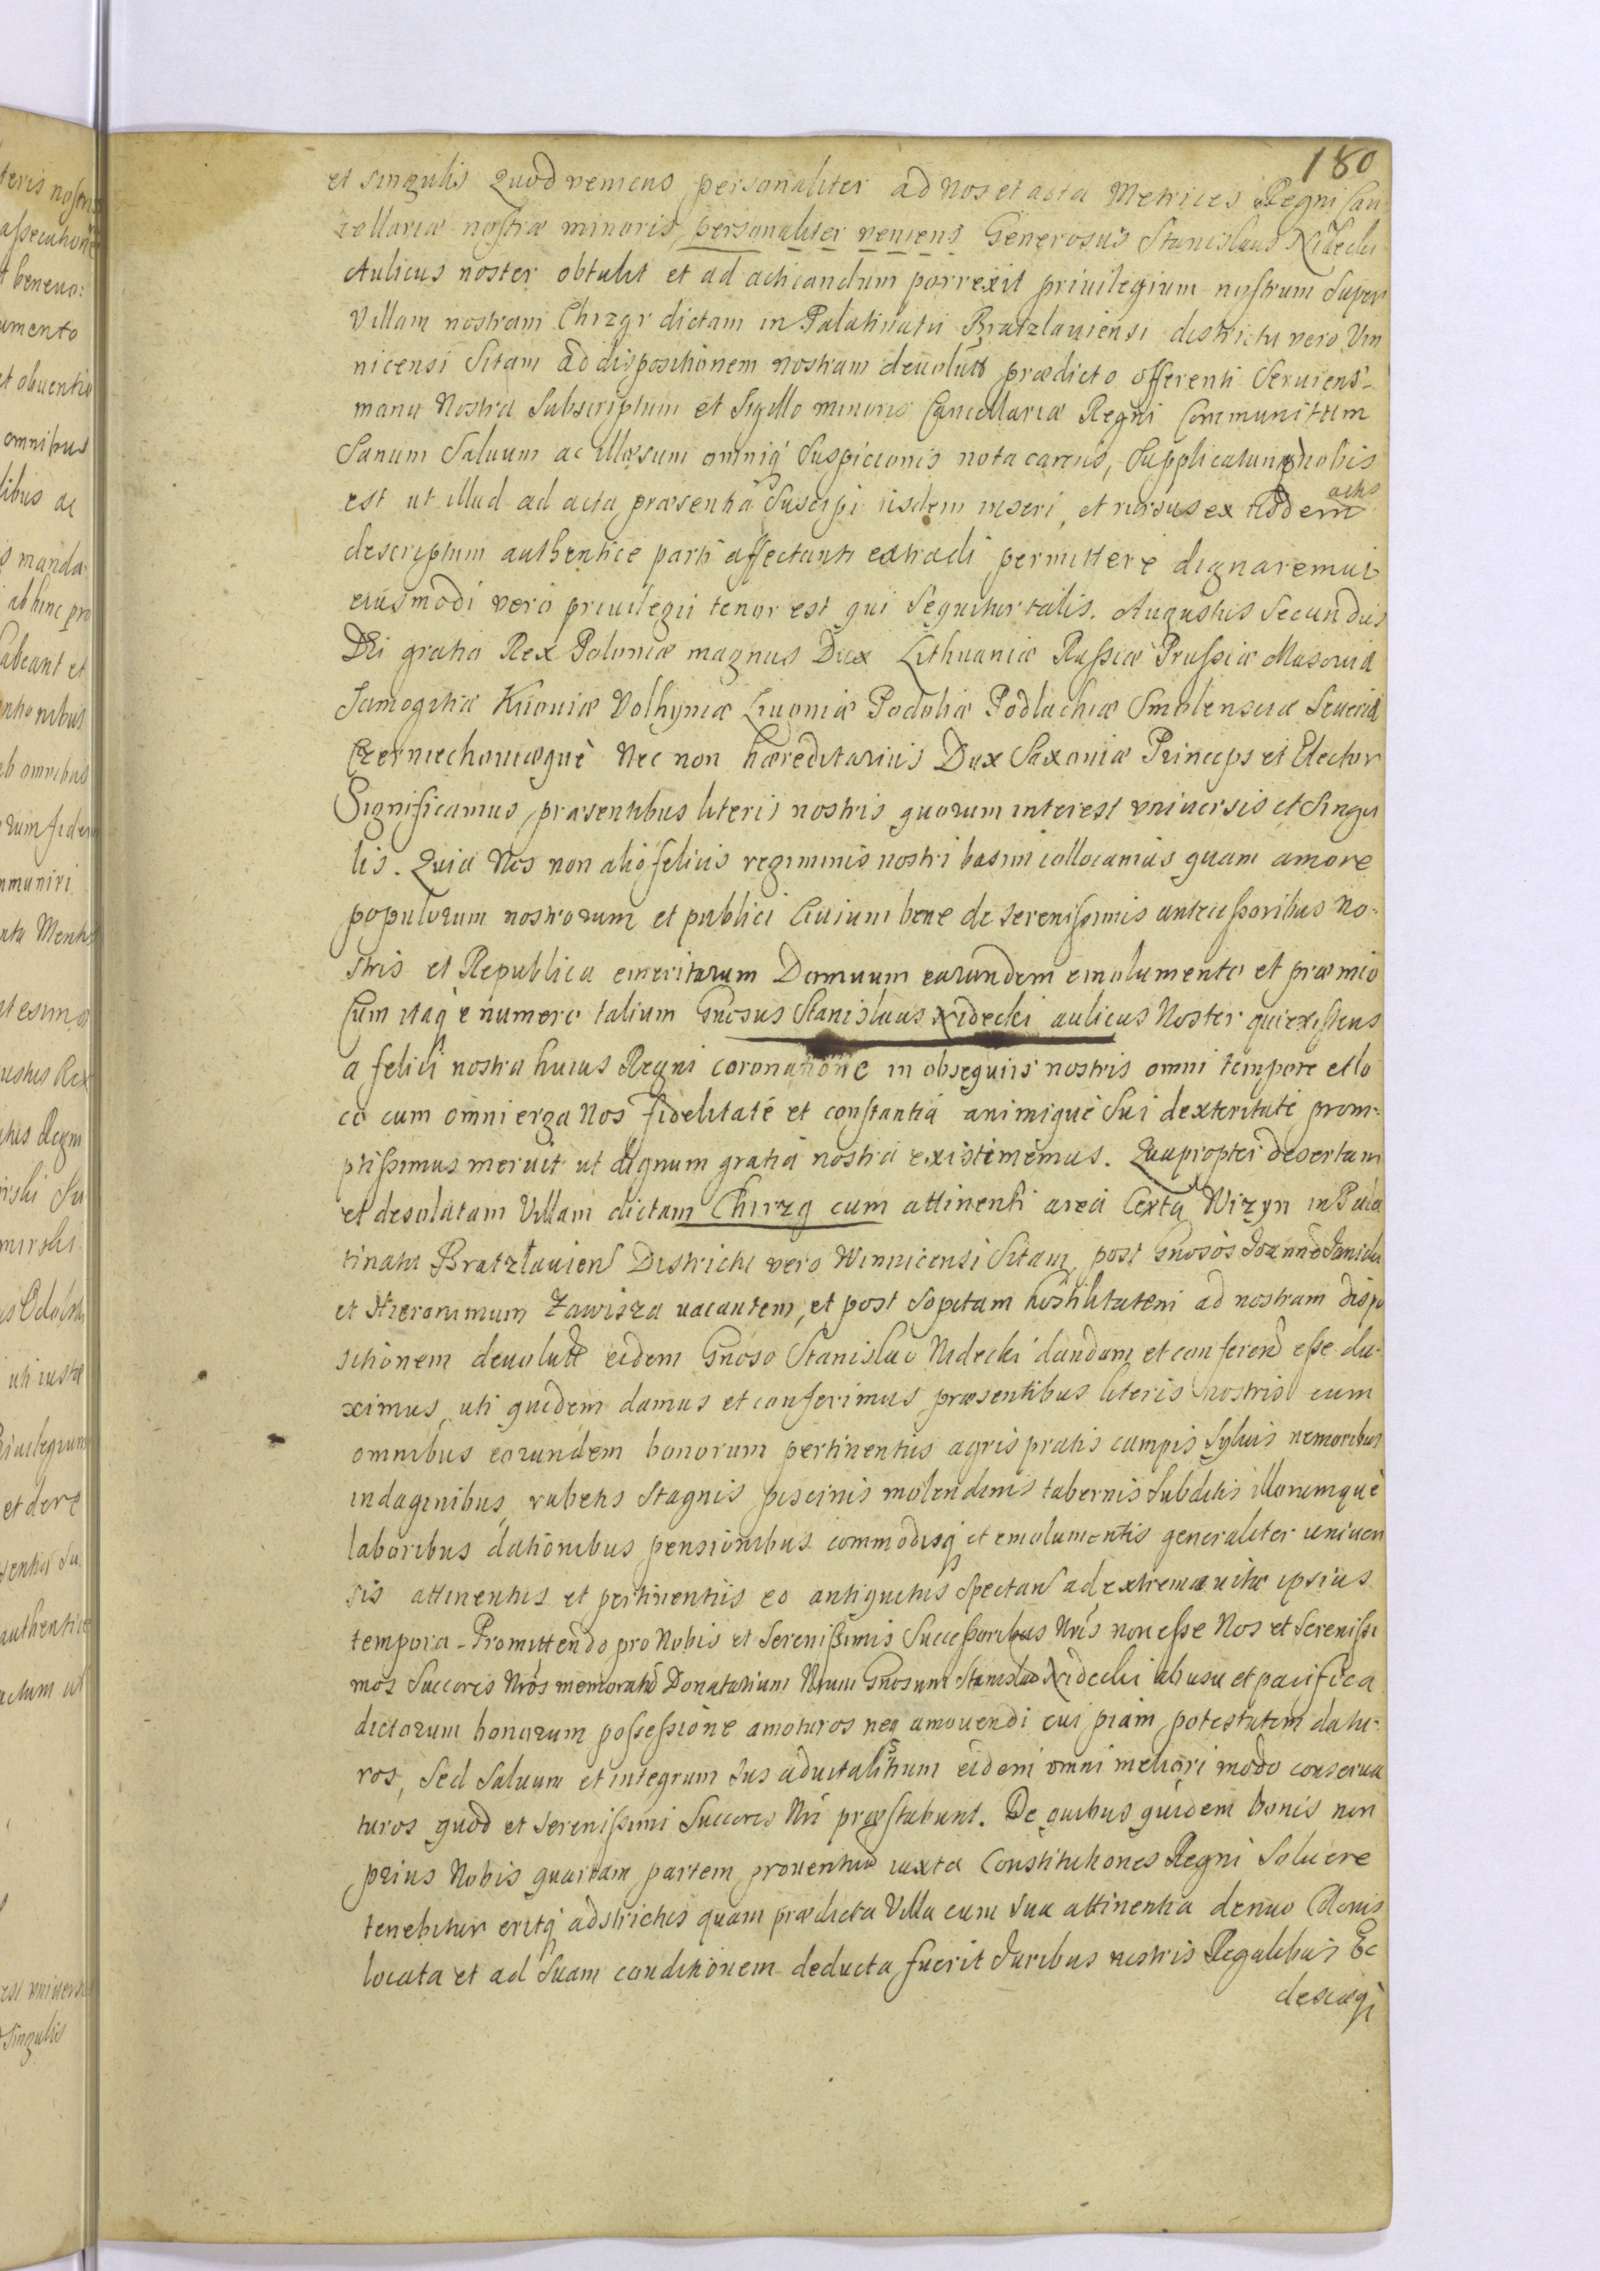 180
et singulis Quod veniens personaliter ad Nos et acta Metrices Regni Can
cellariæ nostræ minoris, personaliter veniens Generosus Stanislaus Nidecki
Aulicus noster obtulit et ad acticandum porrexit privilegium nostrum super
Villam nostram Chirzgr dictam in Palatinatu Bratzlaviensi districtu vero Vin
nicensi Sitam ad dispositionem nostram devolutt prædicto offerenti Serviens
manu Nostra Subscriptum et Sigillo minoris Cancellariæ Regni Communitum
Sanum Salvum ac illæsum omniq suspicionis nota carens, Supplicatumq nobis
est ut illud ad acta præsentia Suscipi iisdem inseri, et rursus ex iisdem actis
descriptum authentice parti affectanti extradi permittere dignaremur
eiusmodi vero privilegii tenor est qui Sequitur talis. Augustus Secundus
Dei gratia Rex Poloniæ magnus Dux Lithuaniæ Russiæ Prussiæ Masoviæ
Samogitiæ Kiioviæ Volhyniæ Livoniæ Podoliæ Podlachiæ Smolensciæ Severiæ
Czerniechoviæquè Nec non hæreditarius Dux Saxoniæ Princeps et Elector
Significamus præsentibus literis nostris quorum interest universis et Singu
lis. Quia Nos non alio felicis regiminis nostri basim collocamus quam amore
populorum nostrorum et publici Civium bene de serenissimis antecessoribus No-
stris et Republica emeritorum Domuum earundem emolumento et præmio
Cum itaq è numero talium Gnosus Stanislaus Nidecki aulicus Noster qui existens
a felici nostra huius Regni coronatione in obsequiis nostris omni tempore et lo
co cum omni erga Nos fidelitate et constantia animique Sui dexteritate prom-
ptissimus meruit ut dignum gratia nostra existimemus. Quapropter desertam
et desolatam Villam dictam Chirzg cum attinenti area Certa Wizyn in Pala
tinatu Bratzlavien Districtu vero Winnicensi Sitam, post Gnosos Joannem
et Hieronimum Zawisza vacantem, et post Sopitam hostilitatem ad nostram dispo
sitionem devolutt eidem Gnoso Stanislao Nidecki dandam et conferend esse du-
ximus, uti quidem damus et conferimus præsentibus literis nostris cum
omnibus eorundem bonorum pertinentiis agris pratis campis Sylvis nemoribus
indaginibus, rubetis Stagnis piscinis molendinis tabernis Subditis illorumquè
laboribus dationibus pensionibus commodisq et emolumentis generaliter univer
sis attinentiis et pertinentiis eo antiquitus Spectan ad extrema vitæ ipsius
tempora - Promittendo pro Nobis et Serenissimis Successoribus Nris non esse Nos et Serenissi
mos Succores Nros memorato Donatarium Nrum Gnosum Stanislao Nidecki ab usu et pacifica
dictorum bonorum possessione amoturos neq amovendi cuipiam potestatem datu-
ros, Sed Salvum et integrum Jus advitalitium eidem omni meliori modo conserva
turos quod et serenissimi Succores Nri præstabunt. De quibus quidem bonis non
prius Nobis quartam partem proventuu iuxta Constitutiones Regni Solvere
tenebitur eritq adstrictus quam prædicta Villa cum Sua attinentia denuo Colonis
locata et ad Suam conditionem deducta fuerit Juribus nostris Regalibus Ec
clesiæq